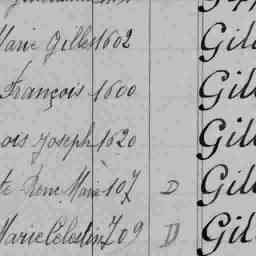 Marie Gilles 1602 Gil
François 1600 Gil
ois Joseph 1620 Gil
te Rene Marie 107 D Gil
Marie Celestin 709 D Gil